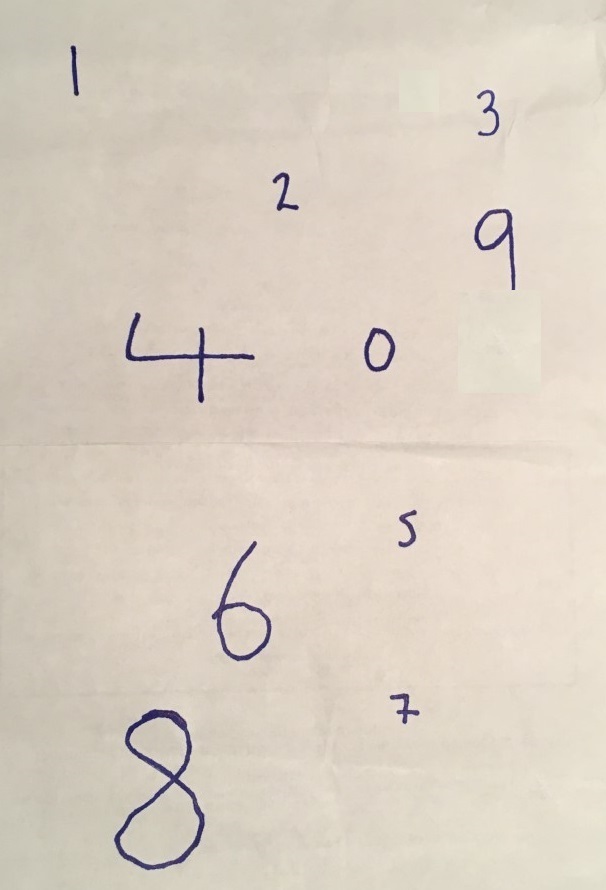 1
3
2
9
4 0
5
6
7
8